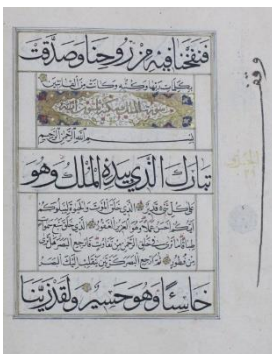 فَنَفَخْنَا فِيهِ مِنْ رُوحِنَا وَصَدَّقَتْ
بكلمات ربها وكتبه وكانت من القانتين
بسم الله الرحمن الرحيم
تَبَارَكَ الَّذِي بِيَدِهِ الْمُلْكُ وَهُوَ
على كل شيء قدير الذي خلق الموت والحيوة ليبلوكم
ايكم احسن عملا وهو العزيز الغفور الذي خلق سبع سموات
طباقا ما ترى في خلق الرحمن من تفاوت فارجع البصر هل ترى
من فطور ثم ارجع البصر كرتين ينقلب اليك البصر
خَاسِئًا وَهُوَ حَسِيرٌ وَلَقَدْ زَيَّنَّا
وقف